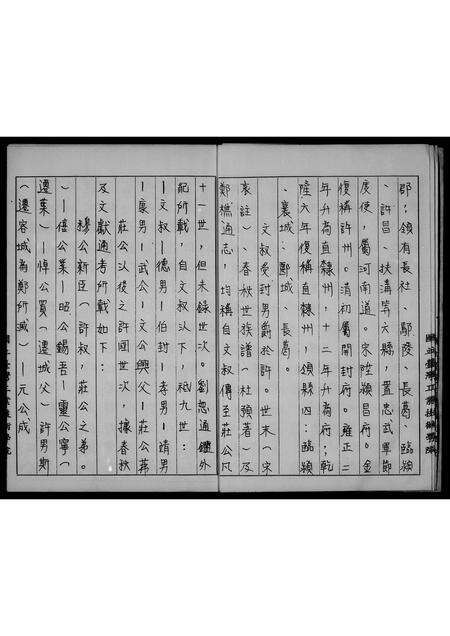 郡,領有長社、鄢陵、長葛、臨潁
、許昌、扶溝等六縣,置忠武軍節
度使,屬河南道。宋陞潁昌府。金
復稱許州。清初屬開封府。雍正二
年升為直隸州,十二年升為府;乾
隆六年復稱直隸州,領縣四:臨潁
、襄城、郾城、長葛。
文叔受封男爵於許。世本(宋
衷註)、春秋世族譜(杜預著)及
鄭樵通志,均稱自文叔傳至莊公凡
十一世,但未錄世次。劉恕通鑑外
紀所載,自文叔以下,祗九世:
—文叔—德男—伯封—孝男—靖男
—康男—武公—文公興父—莊公茀
莊公以後之許國世次,據春秋
及文獻通考所載如下:
穆公新臣(許叔,莊公之弟。
)—僖公業—昭公錫吾—靈公甯(
遷葉)—悼公買(遷城父)許男斯
(遷容城為鄭所滅)—元公成